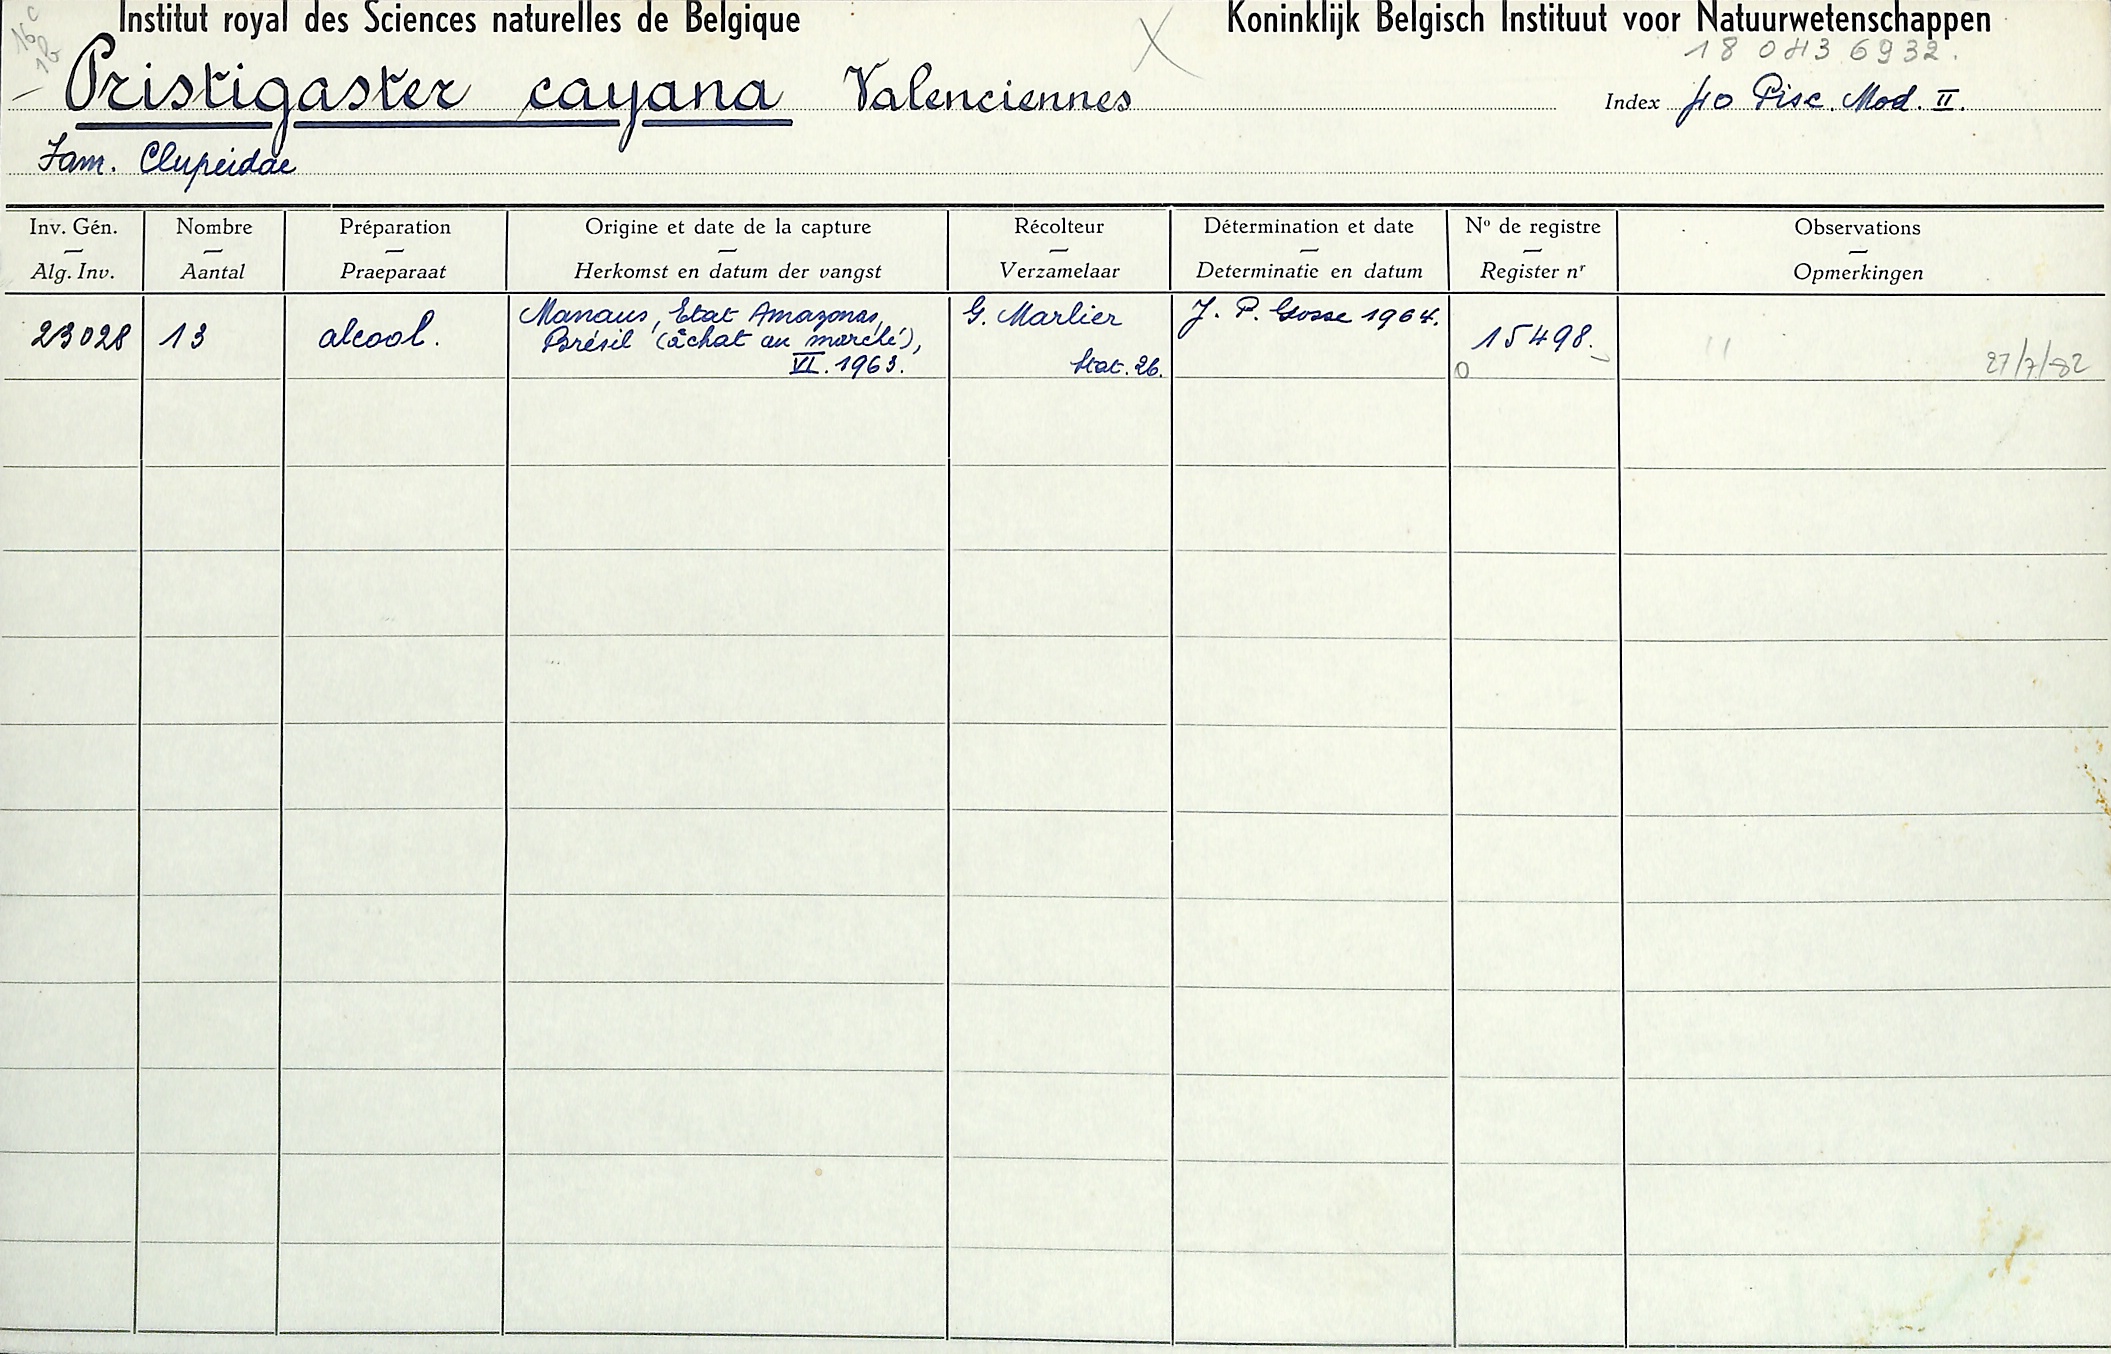 Institut royal des Sciences naturelles de Belgique Koninklijk Belgisch Instituut voor Natuurwetenschappen
18 04 3 6932.
Pristigaster cayana Valenciennes Index 40 Pisc. Mod. II.
Fam. Clupeidae
Inv. Gén. Nombre Préparation Origine et date de la capture Récolteur Détermination et date Nº de registre Observations
Alg. Inv. Aantal Praeparaat Herkomst en datum der vangst Verzamelaar Determinatie en datum Register nr Opmerkingen
23028 13 alcool. Manaus, Etat Amazonas, G. Marlier J. P. Gosse 1964. 15498.
Brésil (âchat au marché),
VI. 1963. Stat. 26. 27/7/82